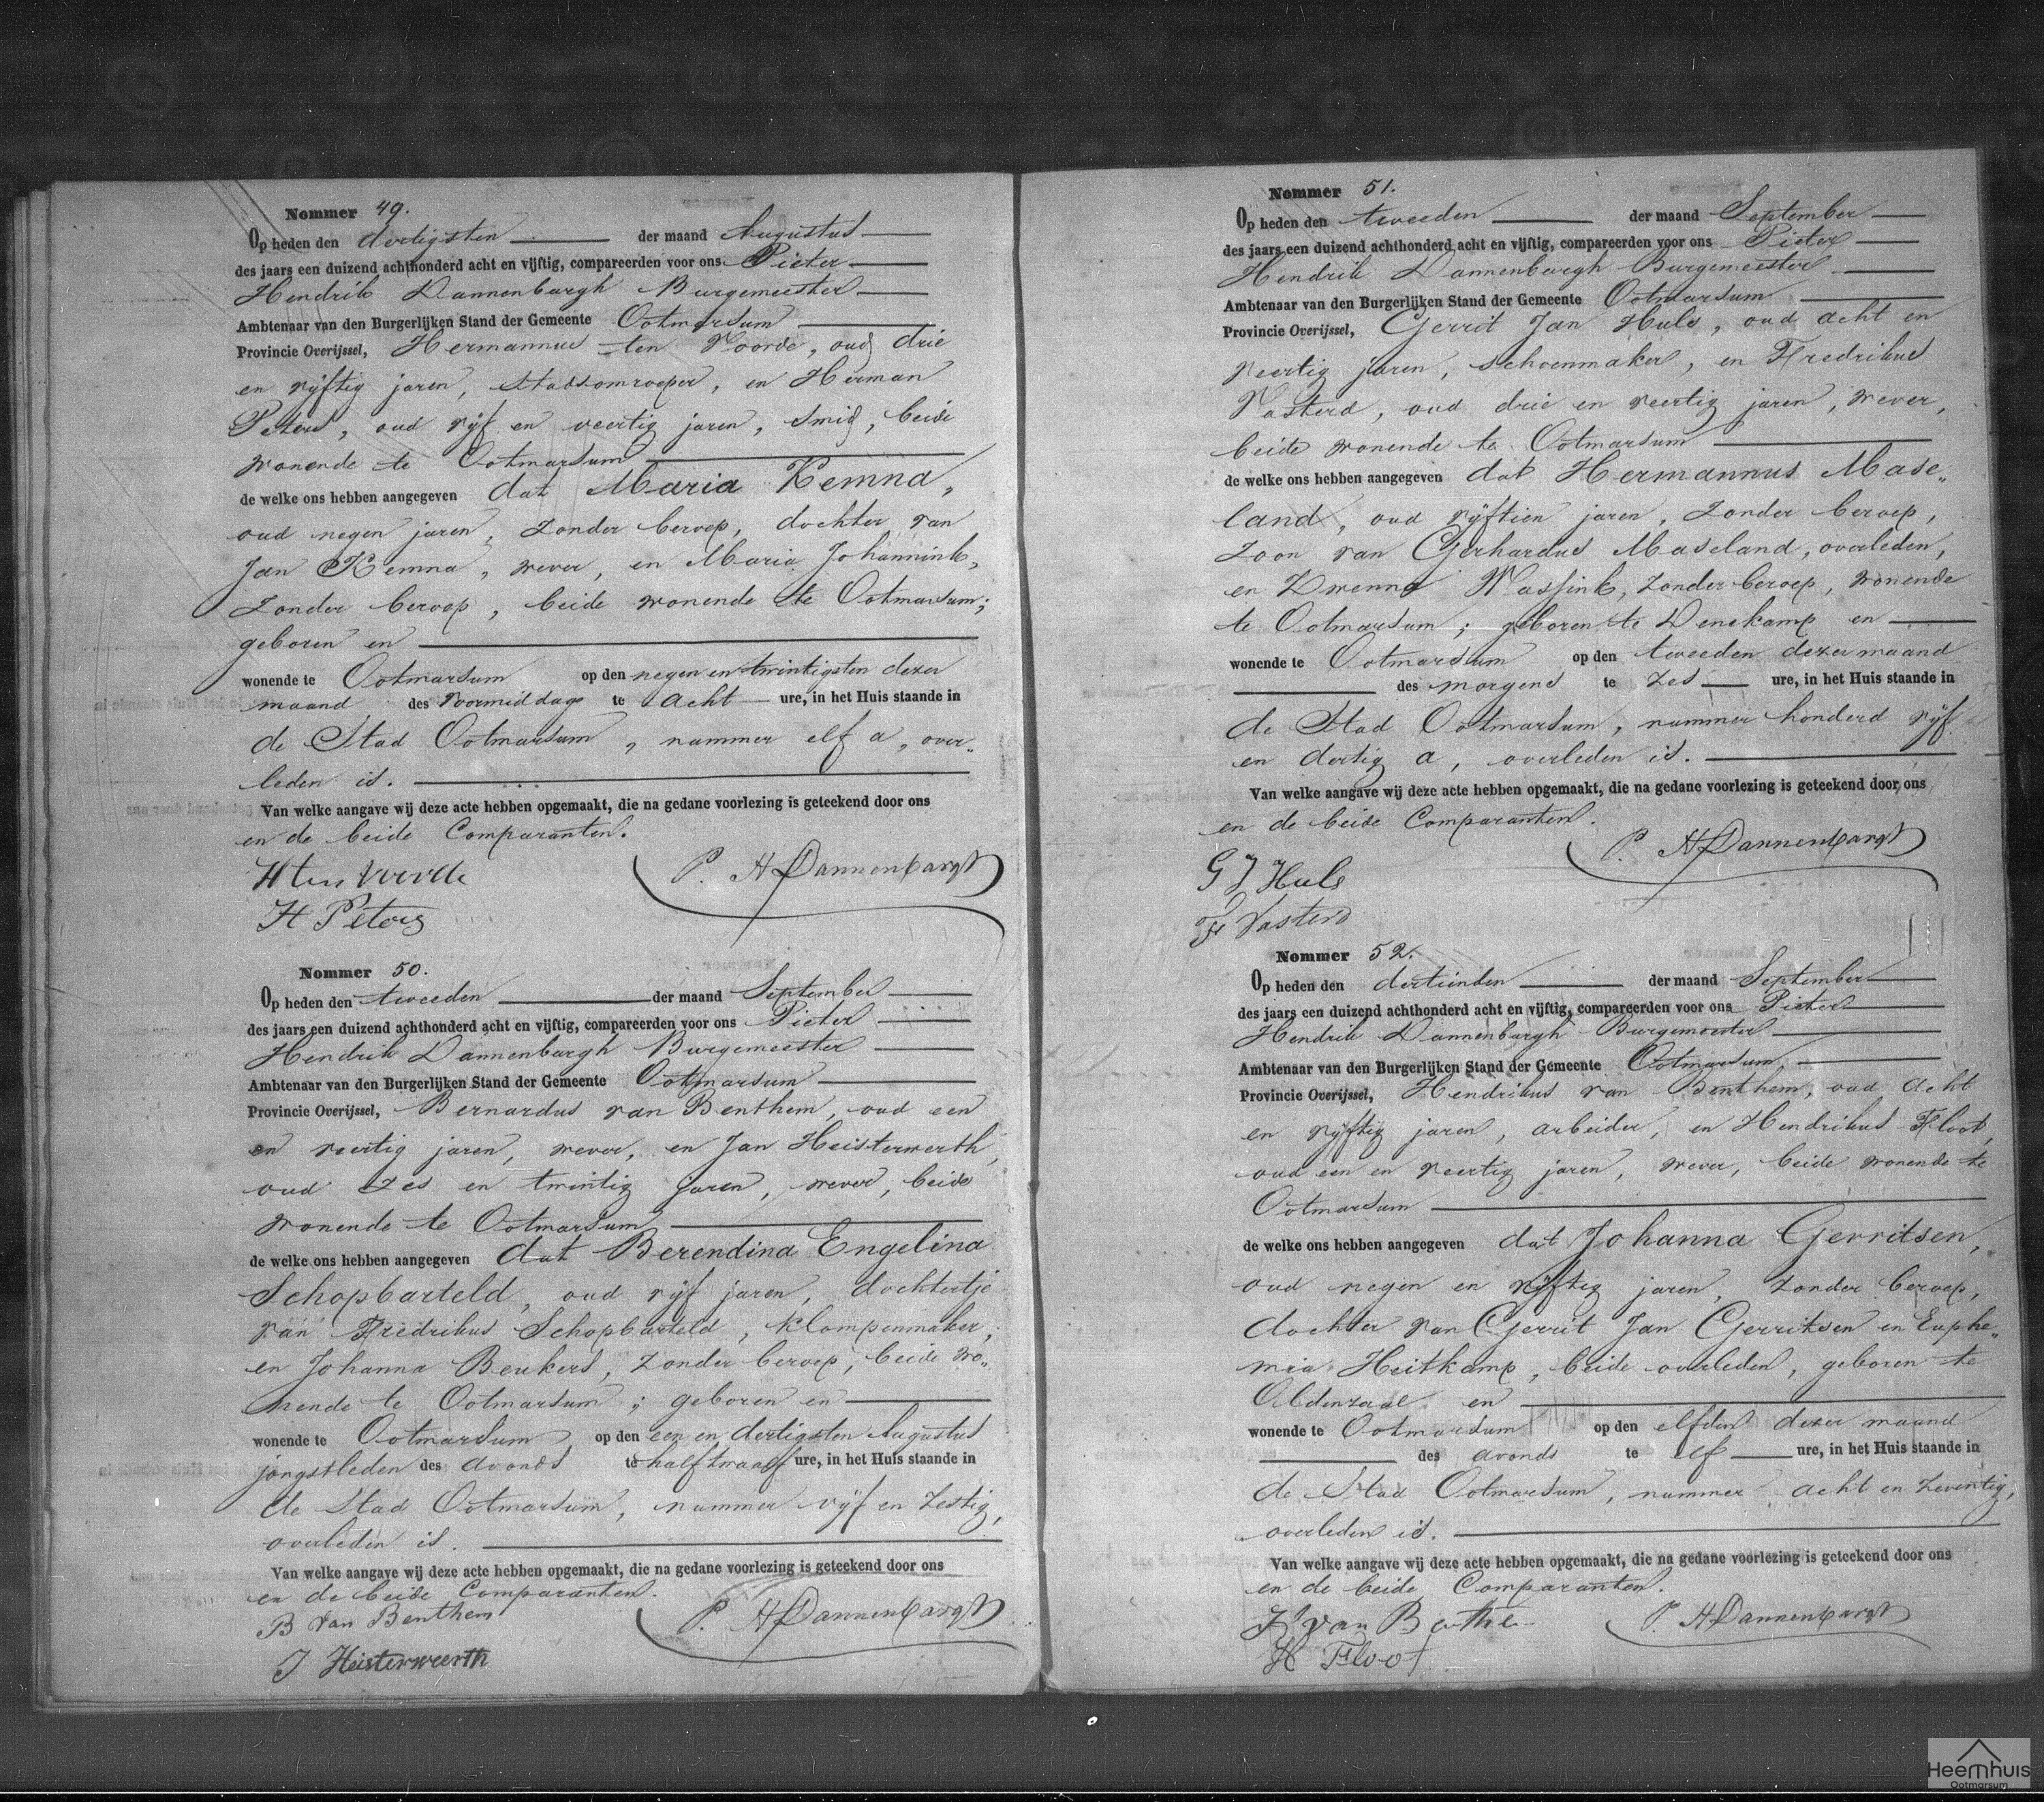 Nommer 49.
Op heden den dertigsten der maand Augustus
des jaars een duizend achthonderd acht en vijftig, compareerden voor ons Pieter
Hendrik Dannenbargh Burgemeester
Ambtenaar van den Burgerlijken Stand der Gemeente Ootmarsum
Provincie Overijssel, Hermannus ten Voorde, oud drie
en vijftig jaren, stadsomroeper, en Herman
Peters, oud vijf en veertig jaren, smid, beide
wonende te Ootmarsum
de welke ons hebben aangegeven dat Maria Kemna,
oud negen jaren, zonder beroep, dochter van
Jan Kemna, wever, en Maria Johannink,
zonder beroep, beide wonende te Ootmarsum;
geboren en
wonende te Ootmarsum op den negen en twintigsten dezer
maand des voormiddags te acht ure, in het Huis staande in
de Stad Ootmarsum, nummer elf a, over„
leden is.
Van welke aangave wij deze acte hebben opgemaakt, die na gedane voorlezing is geteekend door ons
en de beide Comparanten.
H ten Voorde P. H Dannenbargh
H Peters
Nommer 50.
Op heden den tweeden der maand September
des jaars een duizend achthonderd acht en vijftig, compareerden voor ons Pieter
Hendrik Dannenbargh Burgemeester
Ambtenaar van den Burgerlijken Stand der Gemeente Ootmarsum
Provincie Overijssel, Bernardus van Benthem, oud een
en veertig jaren, wever, en Jan Heisterwerth,
oud zes en twintig jaren, wever, beide
wonende te Ootmarsum
de welke ons hebben aangegeven dat Berendina Engelina
Schopbarteld, oud vijf jaren, dochtertje
van Fredrikus Schopbarteld, klompenmaker,
en Johanna Beukers, zonder beroep, beide wo„
nende te Ootmarsum; geboren en
wonende te Ootmarsum op den een en dertigsten Augustus
jongstleden des avonds te half twaalf ure, in het Huis staande in
de Stad Ootmarsum, nummer vijf en zestig,
overleden is.
Van welke aangave wij deze acte hebben opgemaakt, die na gedane voorlezing is geteekend door ons
en de beide Comparanten.
B van Benthem P. H Dannenbargh
J Heisterweerth
Nommer 51.
Op heden den tweeden der maand September
des jaars een duizend achthonderd acht en vijftig, compareerden voor ons Pieter
Hendrik Dannenbargh Burgemeester
Ambtenaar van den Burgerlijken Stand der Gemeente Ootmarsum
Provincie Overijssel, Gerrit Jan Huls, oud acht en
veertig jaren, schoenmaker, en Fredrikus
Vasterd, oud drie en veertig jaren, wever,
beide wonende te Ootmarsum
de welke ons hebben aangegeven dat Hermannus Mase„
land, oud vijftien jaren, zonder beroep,
zoon van Gerhardus Maseland, overleden,
en Zwenna Wassink, zonder beroep, wonende
te Ootmarsum; geboren te Denekamp en
wonende te Ootmarsum op den tweeden dezer maand
des morgens te zes ure, in het Huis staande in
de Stad Ootmarsum, nummer honderd vijf
en dertig a, overleden is.
Van welke aangave wij deze acte hebben opgemaakt, die na gedane voorlezing is geteekend door ons
en de beide Comparanten.
G J Huls P. H Dannenbargh
Fr Vasterd
Nommer 52.
Op heden den dertienden der maand September
des jaars een duizend achthonderd acht en vijftig, compareerden voor ons Pieter
Hendrik Dannenbargh Burgemeester
Ambtenaar van den Burgerlijken Stand der Gemeente Ootmarsum
Provincie Overijssel, Hendrikus van Benthem, oud acht
en vijftig jaren, arbeider, en Hendrikus Floot,
oud een en veertig jaren, wever, beide wonende te
Ootmarsum
de welke ons hebben aangegeven dat Johanna Gerritsen,
oud negen en vijftig jaren, zonder beroep,
dochter van Gerrit Jan Gerritsen en Euphe„
mia Heitkamp, beide overleden, geboren te
Oldenzaal en
wonende te Ootmarsum op den elfden dezer maand
des avonds te elf ure, in het Huis staande in
de Stad Ootmarsum, nummer acht en zeventig,
overleden is.
Van welke aangave wij deze acte hebben opgemaakt, die na gedane voorlezing is geteekend door ons
en de beide Comparanten.
H van Benthe P. H Dannenbargh
H Floot
Heemhuis
Ootmarsum